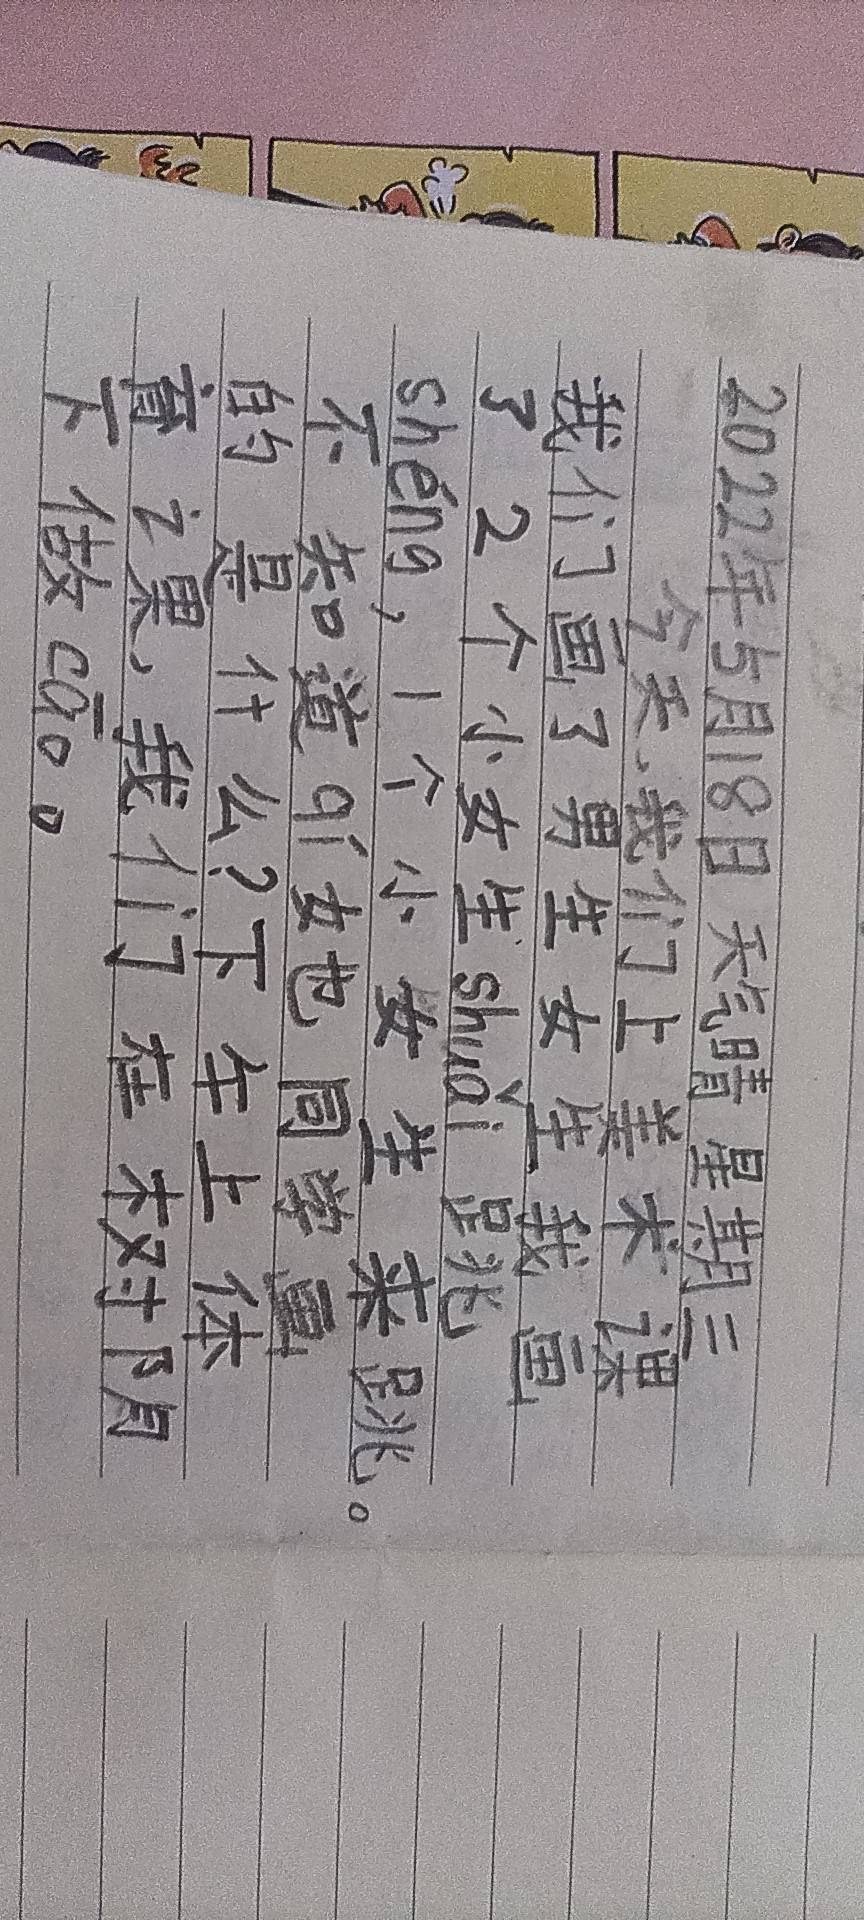 2022年5月18日 天气晴 星期三
今天、我们上美术课
我们画了男生女生我画
了2个小女生shuǎi跳
shéng，1个小女生来跳。
不知道qí女也同学画
的是什么？下午上体
育课、我们在树阴
下做cāo。